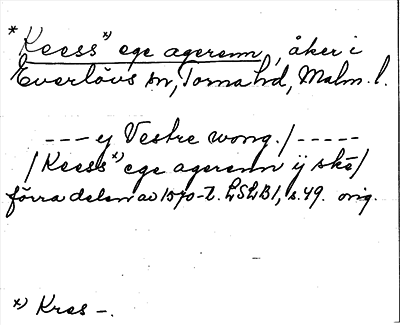 * Keess *) ege agerenn, åker i
Everlövs sn, Torna hd, Malm. l.
--- ey Vestre wong. / -----
/ Keess *) ege agerenn ij skē /
förra delen av 1570-t. LSLB1, s. 49. orig.
*) Kres -.